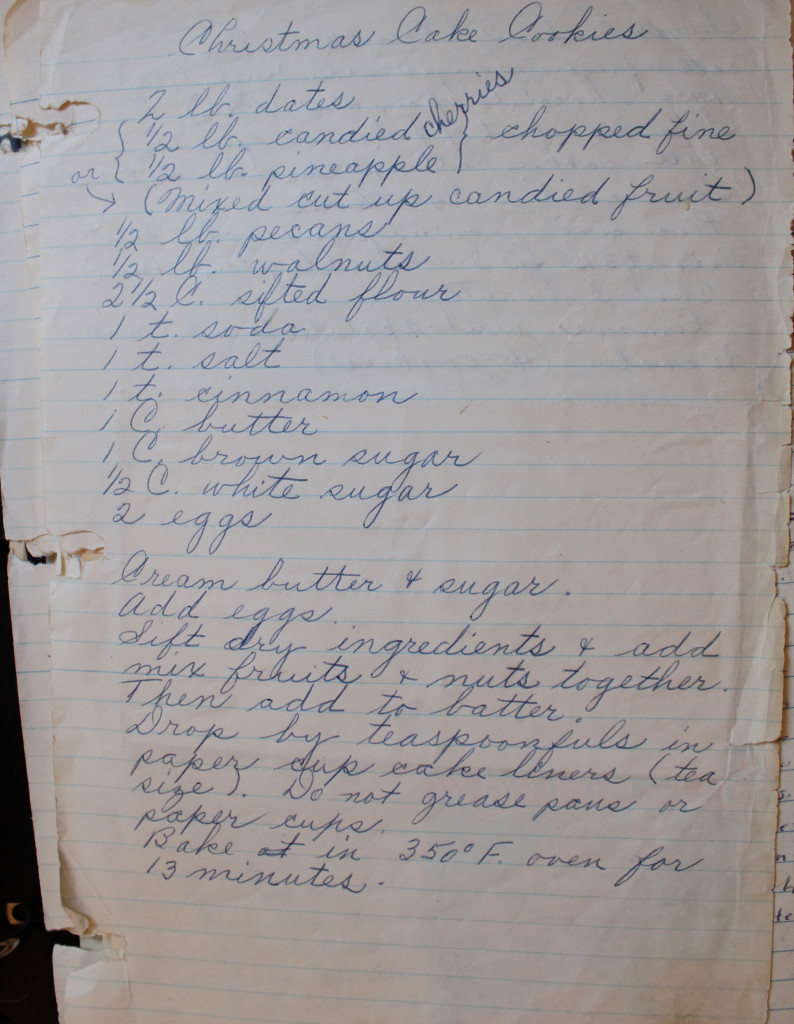 Christmas Cake Cookies
2 lb. dates
½ lb. candied cherries } chopped fine
or { ½ lb. pineapple
→ (Mixed cut up candied fruit)
½ lb. pecans
½ lb. walnuts
2½ C. sifted flour
1 t. soda
1 t. salt
1 t. cinnamon
1 C. butter
1 C. brown sugar
½ C. white sugar
2 eggs
Cream butter & sugar.
Add eggs.
Sift dry ingredients & add
mix fruits & nuts together.
Then add to batter.
Drop by teaspoonfuls in
paper cup cake liners (tea
size). Do not grease pans or
paper cups.
Bake at in 350° F. oven for
13 minutes.